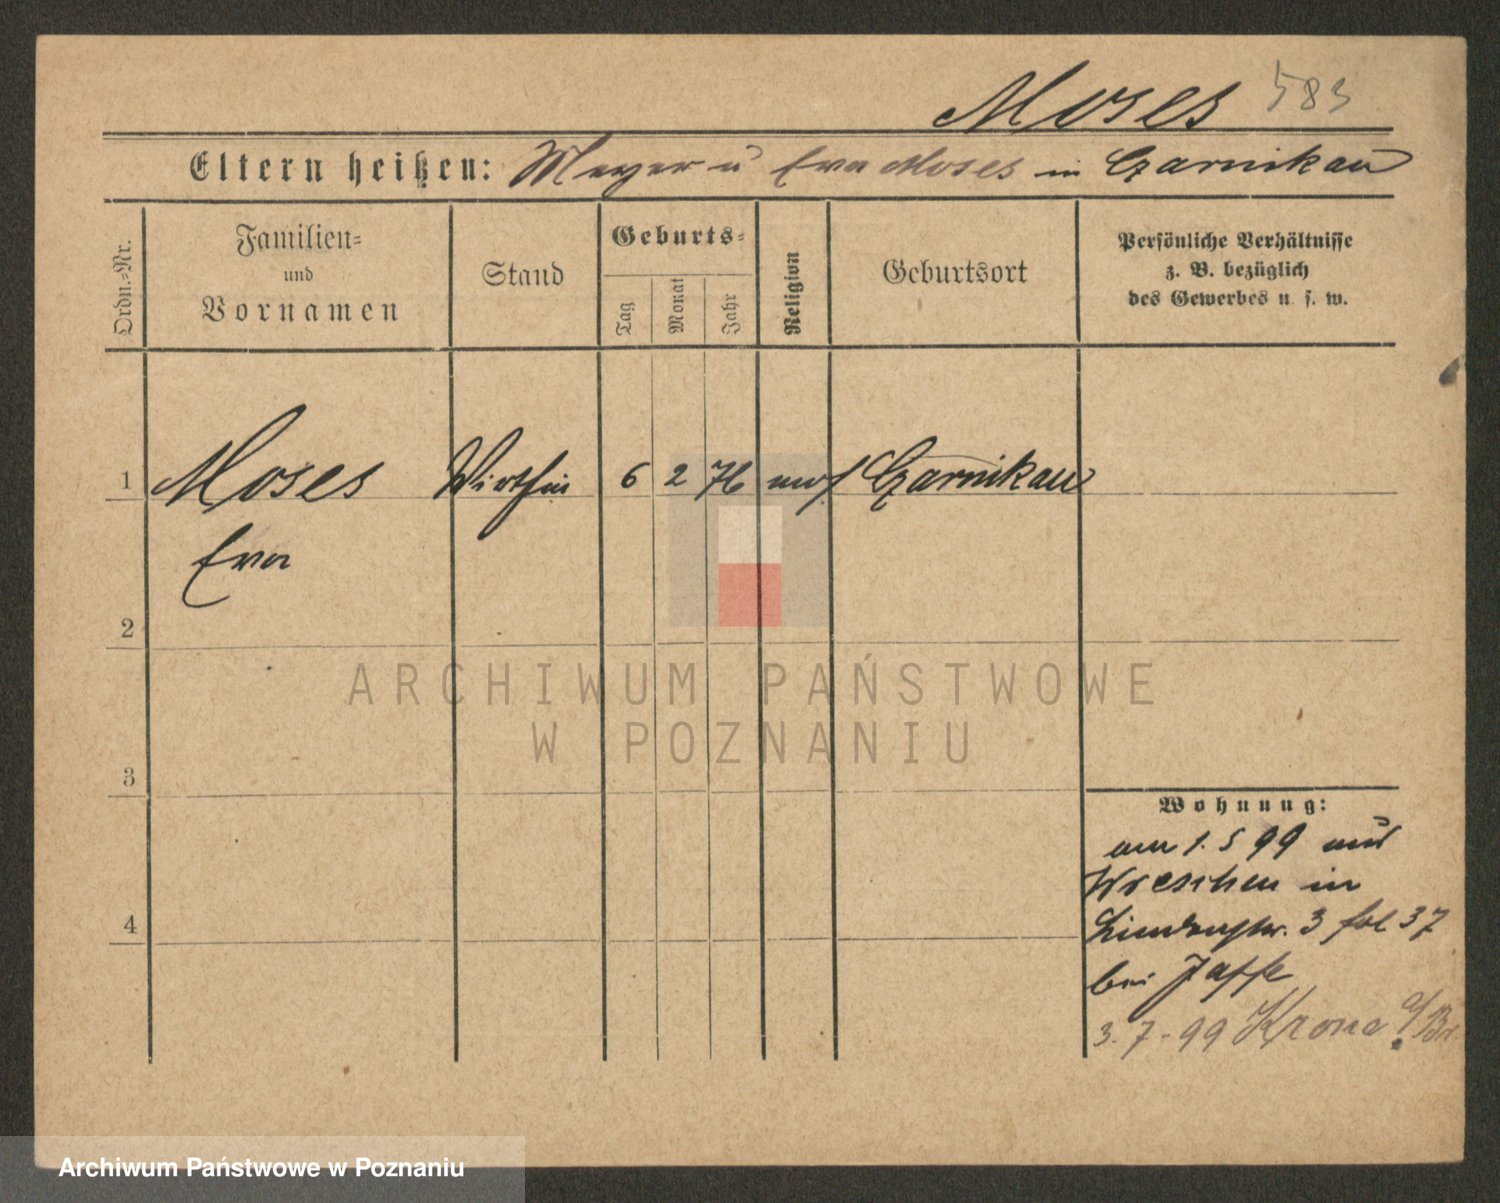 Moses 583
Eltern heißen: Meyer u Eva Moses in Czarnikau
Ordn.-Nr.
Familien-
und
Vornamen
Stand
Geburts-
Tag
Monat
Jahr
Religion
Geburtsort
Persönliche Verhältnisse
z. B. bezüglich
des Gewerbes u. s. w.
1 Moses Wirthin 6 2 76 mos. Czarnikau
Eva
2
3
4
Wohnung:
am 1. 5 99 aus
Wreschen in
Lindenstr. 3 fol 37
bei Jaffe
3.7-99 Krone a/Br.
ARCHIWUM PAŃSTWOWE
W POZNANIU
Archiwum Państwowe w Poznaniu